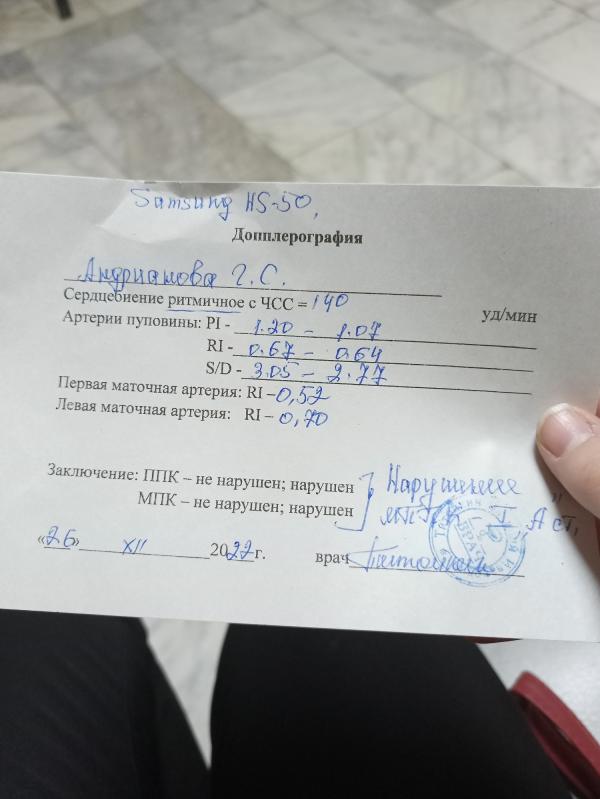 Samsung HS-50,
Допплерография
Андрианова Г. С.
Сердцебиение ритмичное с ЧСС = 140 уд/мин
Артерии пуповины: PI - 1.20 - 1.07
RI - 0.67 - 0.64
S/D - 3.05 - 2.77
Первая маточная артерия: RI – 0,52
Левая маточная артерия: RI – 0,70
Заключение: ППК – не нарушен; нарушен
МПК – не нарушен; нарушен
Нарушение
МПК - I A ст,
«26» XII 2022 г. врач
ВРАЧ